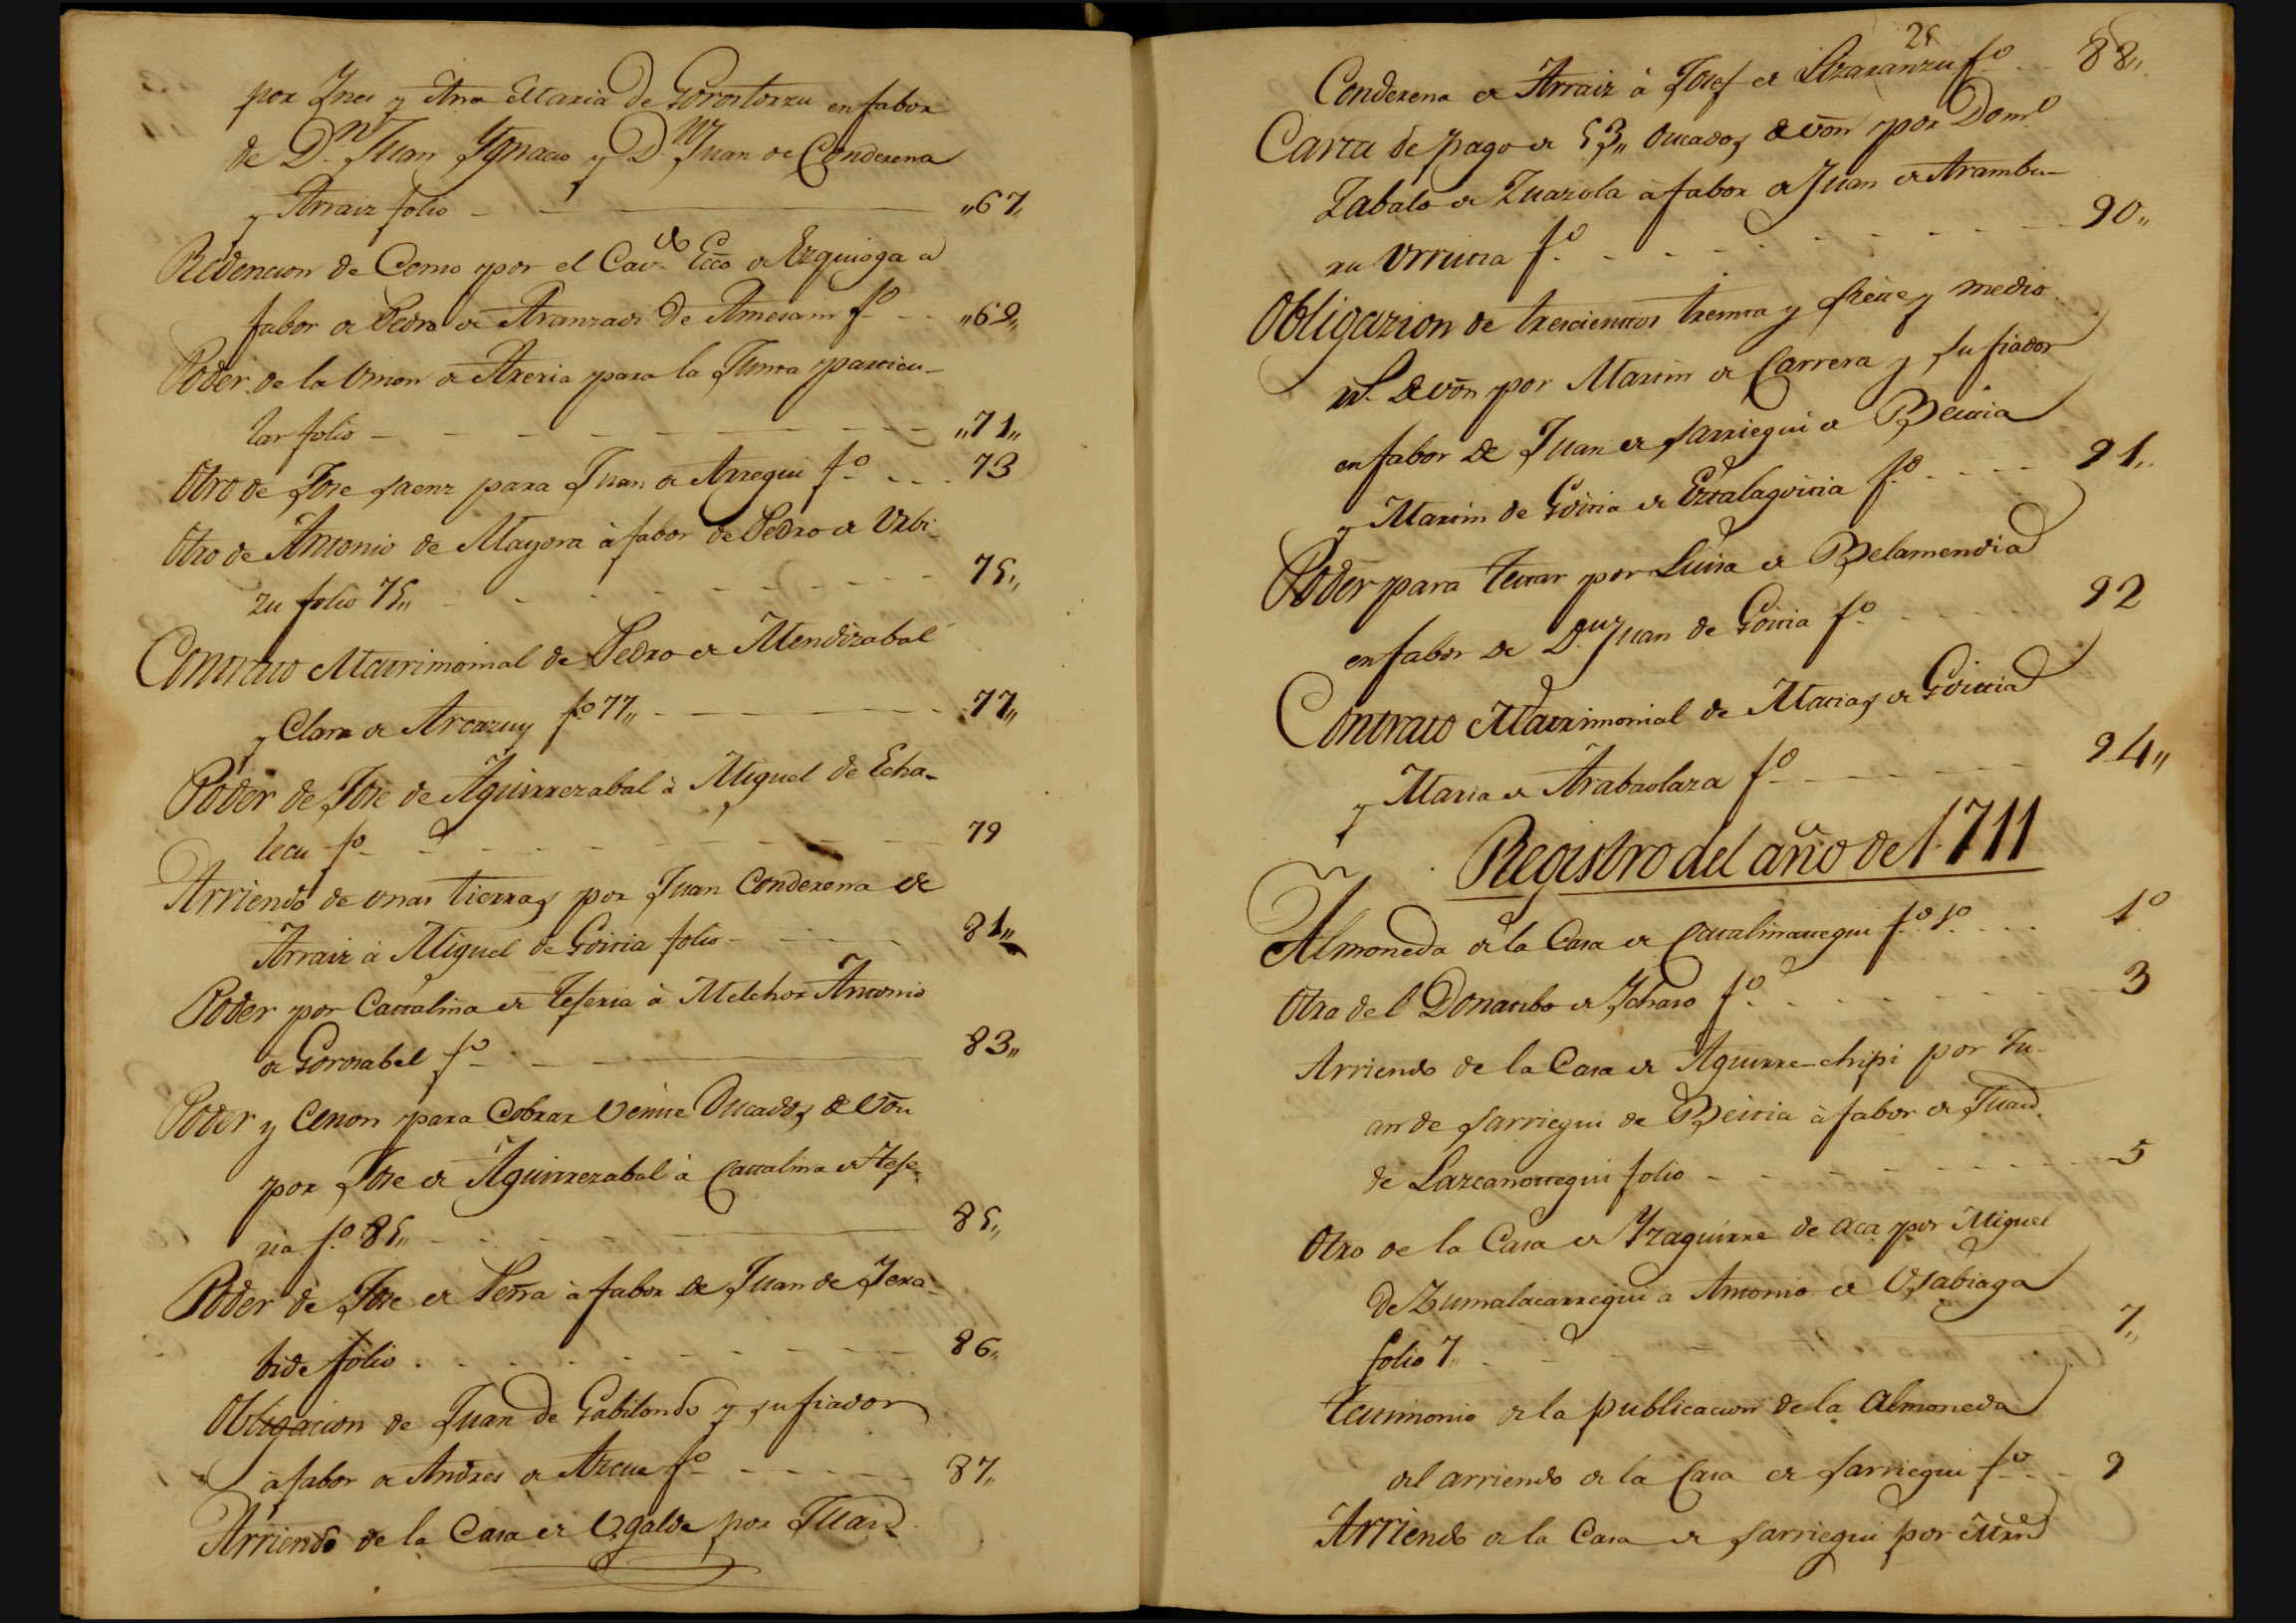 por Ynes y Ana Maria de Gorostorzu en fabor
de D.n Juan Ygnacio y D.n Juan de Conderena
y Arraiz folio - - - „67„
Redencion de Censo por el Cav.do Ecco de Ezquioga a
fabor de Pedro de Aranzadi de Amesain fº - - „69„
Poder de la Union de Areria para la Junta particu-
lar folio - - - - - - - - „71„
Otro de Jose Saenz para Juan de Arregui fº - - - 73
Otro de Antonio de Mayora à fabor de Pedro de Urbi-
zu folio 75„ - - - - - - - 75„
Contrato Matrimonial de Pedro de Mendizabal
y Clara de Arcazuy fº 77„ - - - - 77„
Poder de Jose de Aguirrezabal à Miguel de Echa-
lecu fº - - - - - - - - 79
Arriendo de unas tierras por Juan Conderena de
Arraiz à Miguel de Goitia folio - - - - 81„
Poder por Cattalina de Teseria à Melchor Antonio
de Gorosabel fº - - - 83„
Poder y Cesion para Cobrar Veinte Ducados de von
por Jose de Aguirrezabal à Cattalina de Tese-
ria fº 85„ - - - - 85„
Poder de Jose de Peña à fabor de Juan de Jera-
bide folio - - - - - - - - 86„
Obligacion de Juan de Gabilondo y su fiador
à fabor de Andres de Azcue fº - - - - - - 87„
Arriendo de la Casa de Ugalde por Juan
25
Conderena de Arraiz à Josef de Lizaranzu fº - - 88„
Carta de pago de 53„ ducados de von por Dom.º
Zabalo de Zuazola à fabor de Juan de Arambu-
ru Urrutia fº - - - - - - - - - 90„
Obligazion de trescientos treinta y siete y medio
rs. de von por Martin de Carrera y su fiador
en fabor de Juan de Sarriegui de Beitia
y Martin de Goitia de Eztalagoitia fº - - - - 91„
Poder para testar por Luisa de Belamendia
en fabor de D.n Juan de Goitia fº - - - - - 92
Contrato Matrimonial de Matias de Goittia
y Maria de Arabaolaza fº - - - - - - 94„
Registro del año de 1711
Almoneda de la Casa de Cattalinattegui fº 1º - - - 1º
Otra del Donatibo de Ychaso fº - - - - - - - - 3
Arriendo de la Casa de Aguirre-chipi por Ju-
an de Sarriegui de Beitia à fabor de Juan
de Lazcanottegui folio - - - - - - - - 5
Otro de la Casa de Yzaguirre de aca por Miguel
de Zumalacarregui a Antonio de Usabiaga
folio 7„ - - - 7„
Testimonio de la publicacion de la Almoneda
del arriendo de la Casa de Sarriegui fº - - - 9
Arriendo de la Casa de Sarriegui por